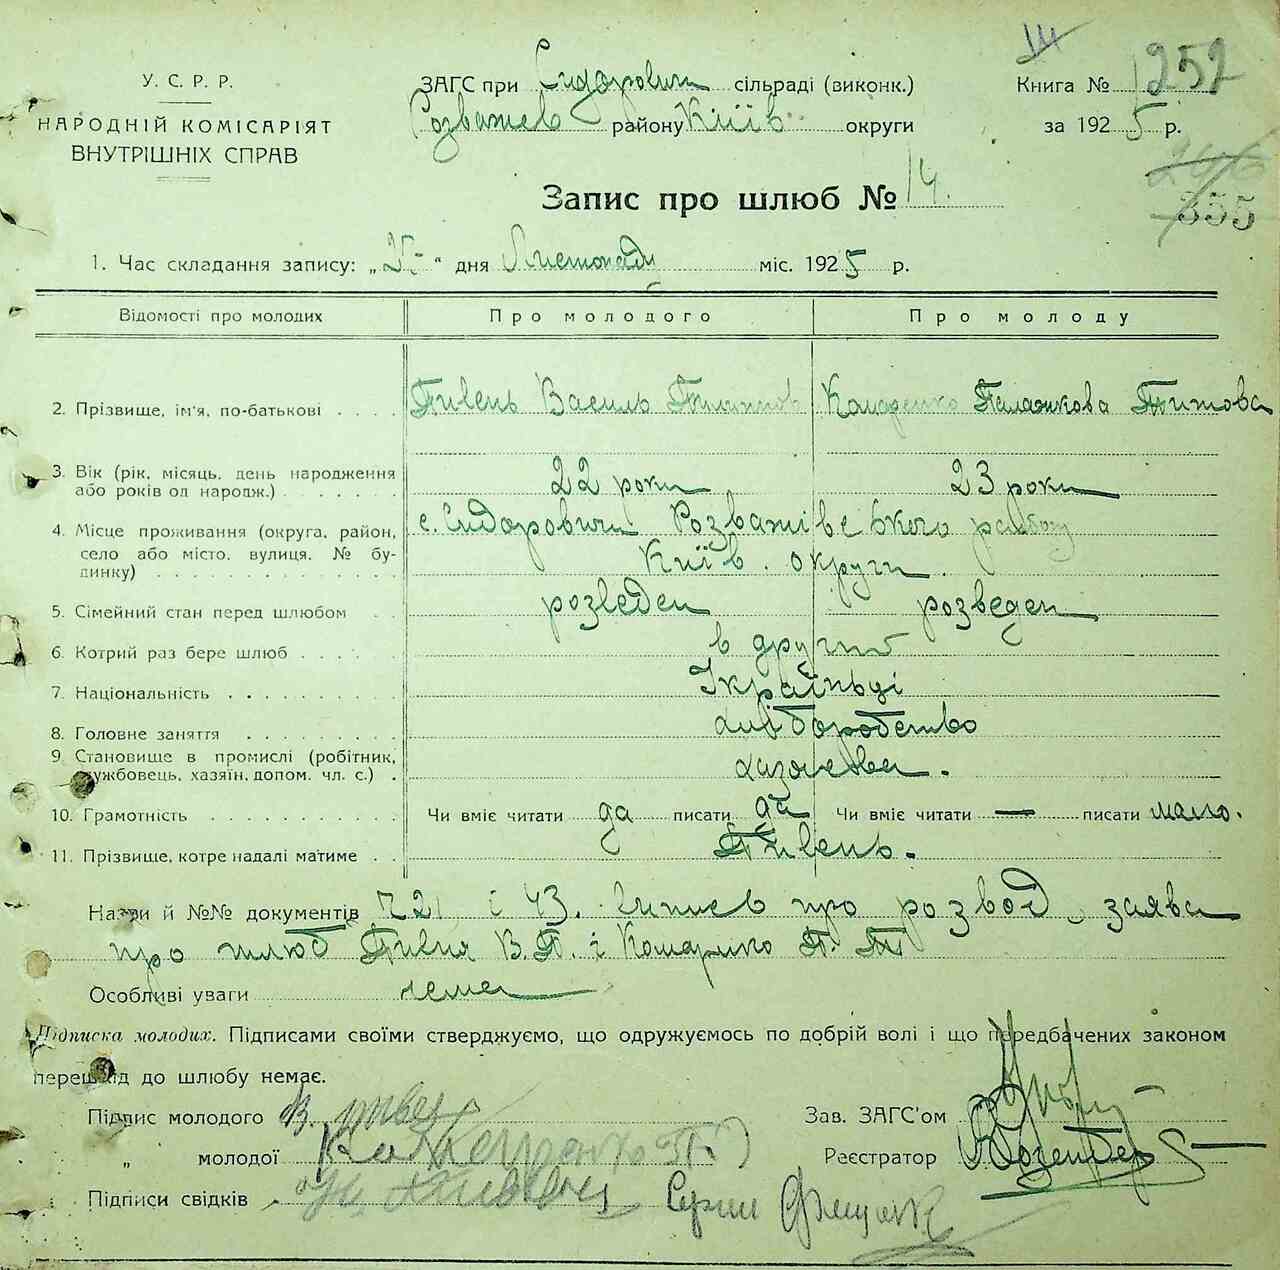 У. С. Р. Р.
НАРОДНІЙ КОМІСАРІЯТ
ВНУТРІШНІХ СПРАВ
ЗАГС при Сидорович сільраді (виконк.)
Розважев району Київ округи
Книга № 252
за 1925 р.
355
Запис про шлюб № 14.
1. Час складання запису: „ “ дня Листопаду міс. 1925 р.
Відомості про молодих Про молодого Про молоду
2. Прізвище, ім'я, по-батькові Пивень Василь Комаренко Титова
3. Вік (рік, місяць, день народження 22 роки 23 роки
або років од народж.)
4. Місце проживання (округа, район, с. Сидоровичи Розважівського району
село або місто, вулиця, № бу- Київ. округи.
динку)
5. Сімейний стан перед шлюбом розведен розведен
6. Котрий раз бере шлюб в другий
7. Національність Україньці
8. Головне заняття хліборобство
9. Становище в промислі (робітник,
службовець, хазяїн, допом. чл. с.)
10. Грамотність Чи вміє читати да писати да Чи вміє читати — писати мало.
11. Прізвище, котре надалі матиме Пивень.
Назви й №№ документів і 43. про розвод, заява
про шлюб Пивня В. П. і Комаренко П. Т
Особливі уваги нема
Підписка молодих. Підписами своїми стверджуємо, що одружуємось по добрій волі і що передбачених законом
перешкод до шлюбу немає.
Підпис молодого В. Пивень
Зав. ЗАГС'ом
„ молодої Комаренко П. Т
Реєстратор
Підписи свідків